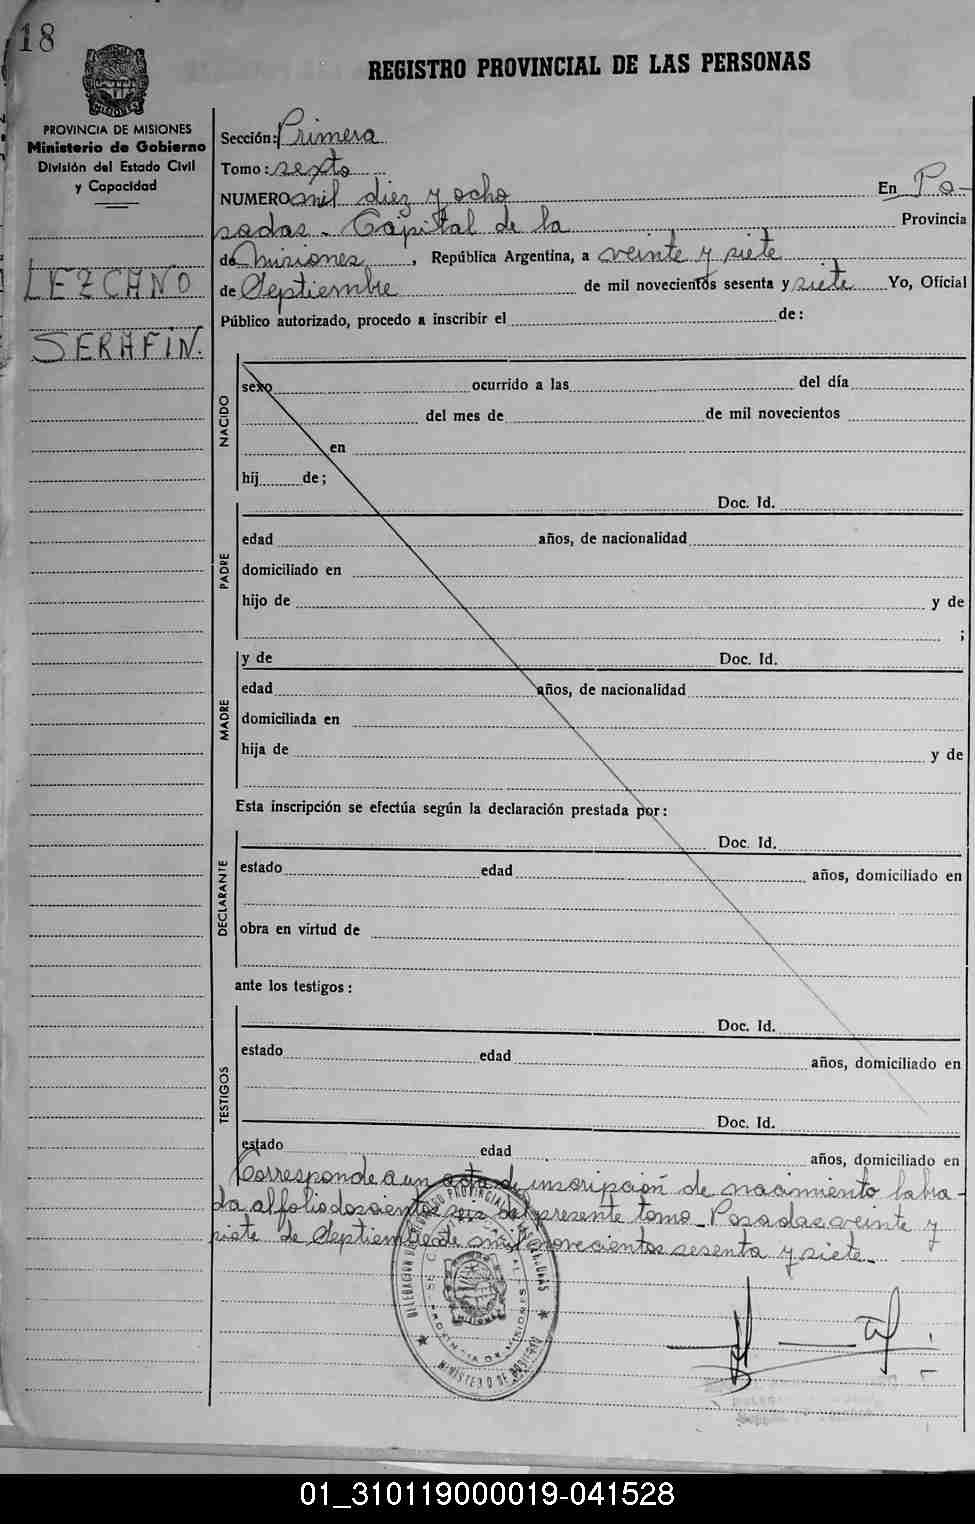 18
REGISTRO PROVINCIAL DE LAS PERSONAS
MISIONES
PROVINCIA DE MISIONES
Ministerio de Gobierno
División del Estado Civil
y Capacidad
LEZCANO
SERAFIN.
Sección: Primera
Tomo: sexto
NUMERO mil diez y ocho En Po-
sadas - Capital de la Provincia
de Misiones, República Argentina, a veinte y siete
de Septiembre de mil novecientos sesenta y siete Yo, Oficial
Público autorizado, procedo a inscribir el de:
NACIDO
sexo ocurrido a las del día
del mes de de mil novecientos
en
hij de;
PADRE
Doc. Id.
edad años, de nacionalidad
domiciliado en
hijo de y de
;
MADRE
y de Doc. Id.
edad años, de nacionalidad
domiciliada en
hija de y de
Esta inscripción se efectúa según la declaración prestada por:
DECLARANTE
Doc. Id.
estado edad años, domiciliado en
obra en virtud de
ante los testigos:
TESTIGOS
Doc. Id.
estado edad años, domiciliado en
Doc. Id.
estado edad años, domiciliado en
Corresponde a un acta de inscripción de nacimiento labra-
da al folio doscientos seis del presente tomo - Posadas veinte y
siete de Septiembre de mil novecientos sesenta y siete.-
DELEGACION DEL REGISTRO PROVINCIAL DE LAS PERSONAS
PROVINCIA DE MISIONES
MISIONES
MINISTERIO DE GOBIERNO
01_310119000019-041528